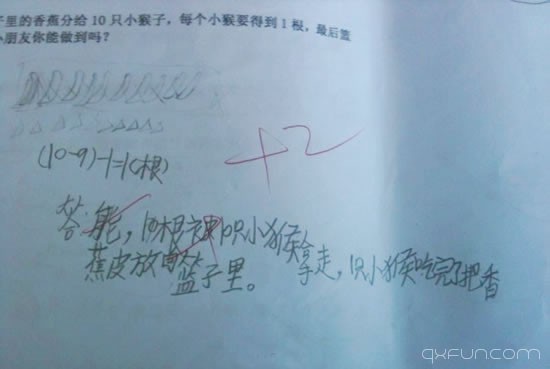 子里的香蕉分给 10 只小猴子，每个小猴要得到 1 根，最后篮
小朋友你能做到吗？
+2
(10-9)-1=1(根)
答:能，10根被10只小猴拿走，1只小猴吃完了把香
蕉皮放 篮子里。
qxfuncom